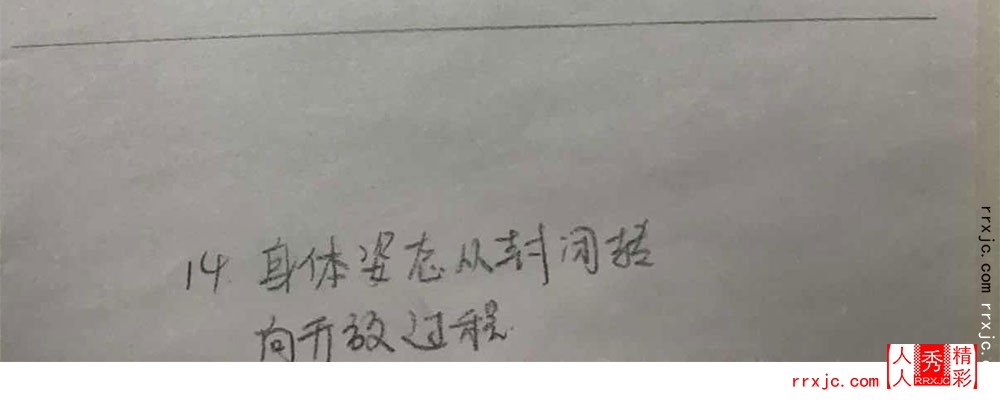 14 身体姿态从封闭转
向开放过程
rrxjc.com rrxjc.c
rrxjc.com
人人秀精彩
RRXJC